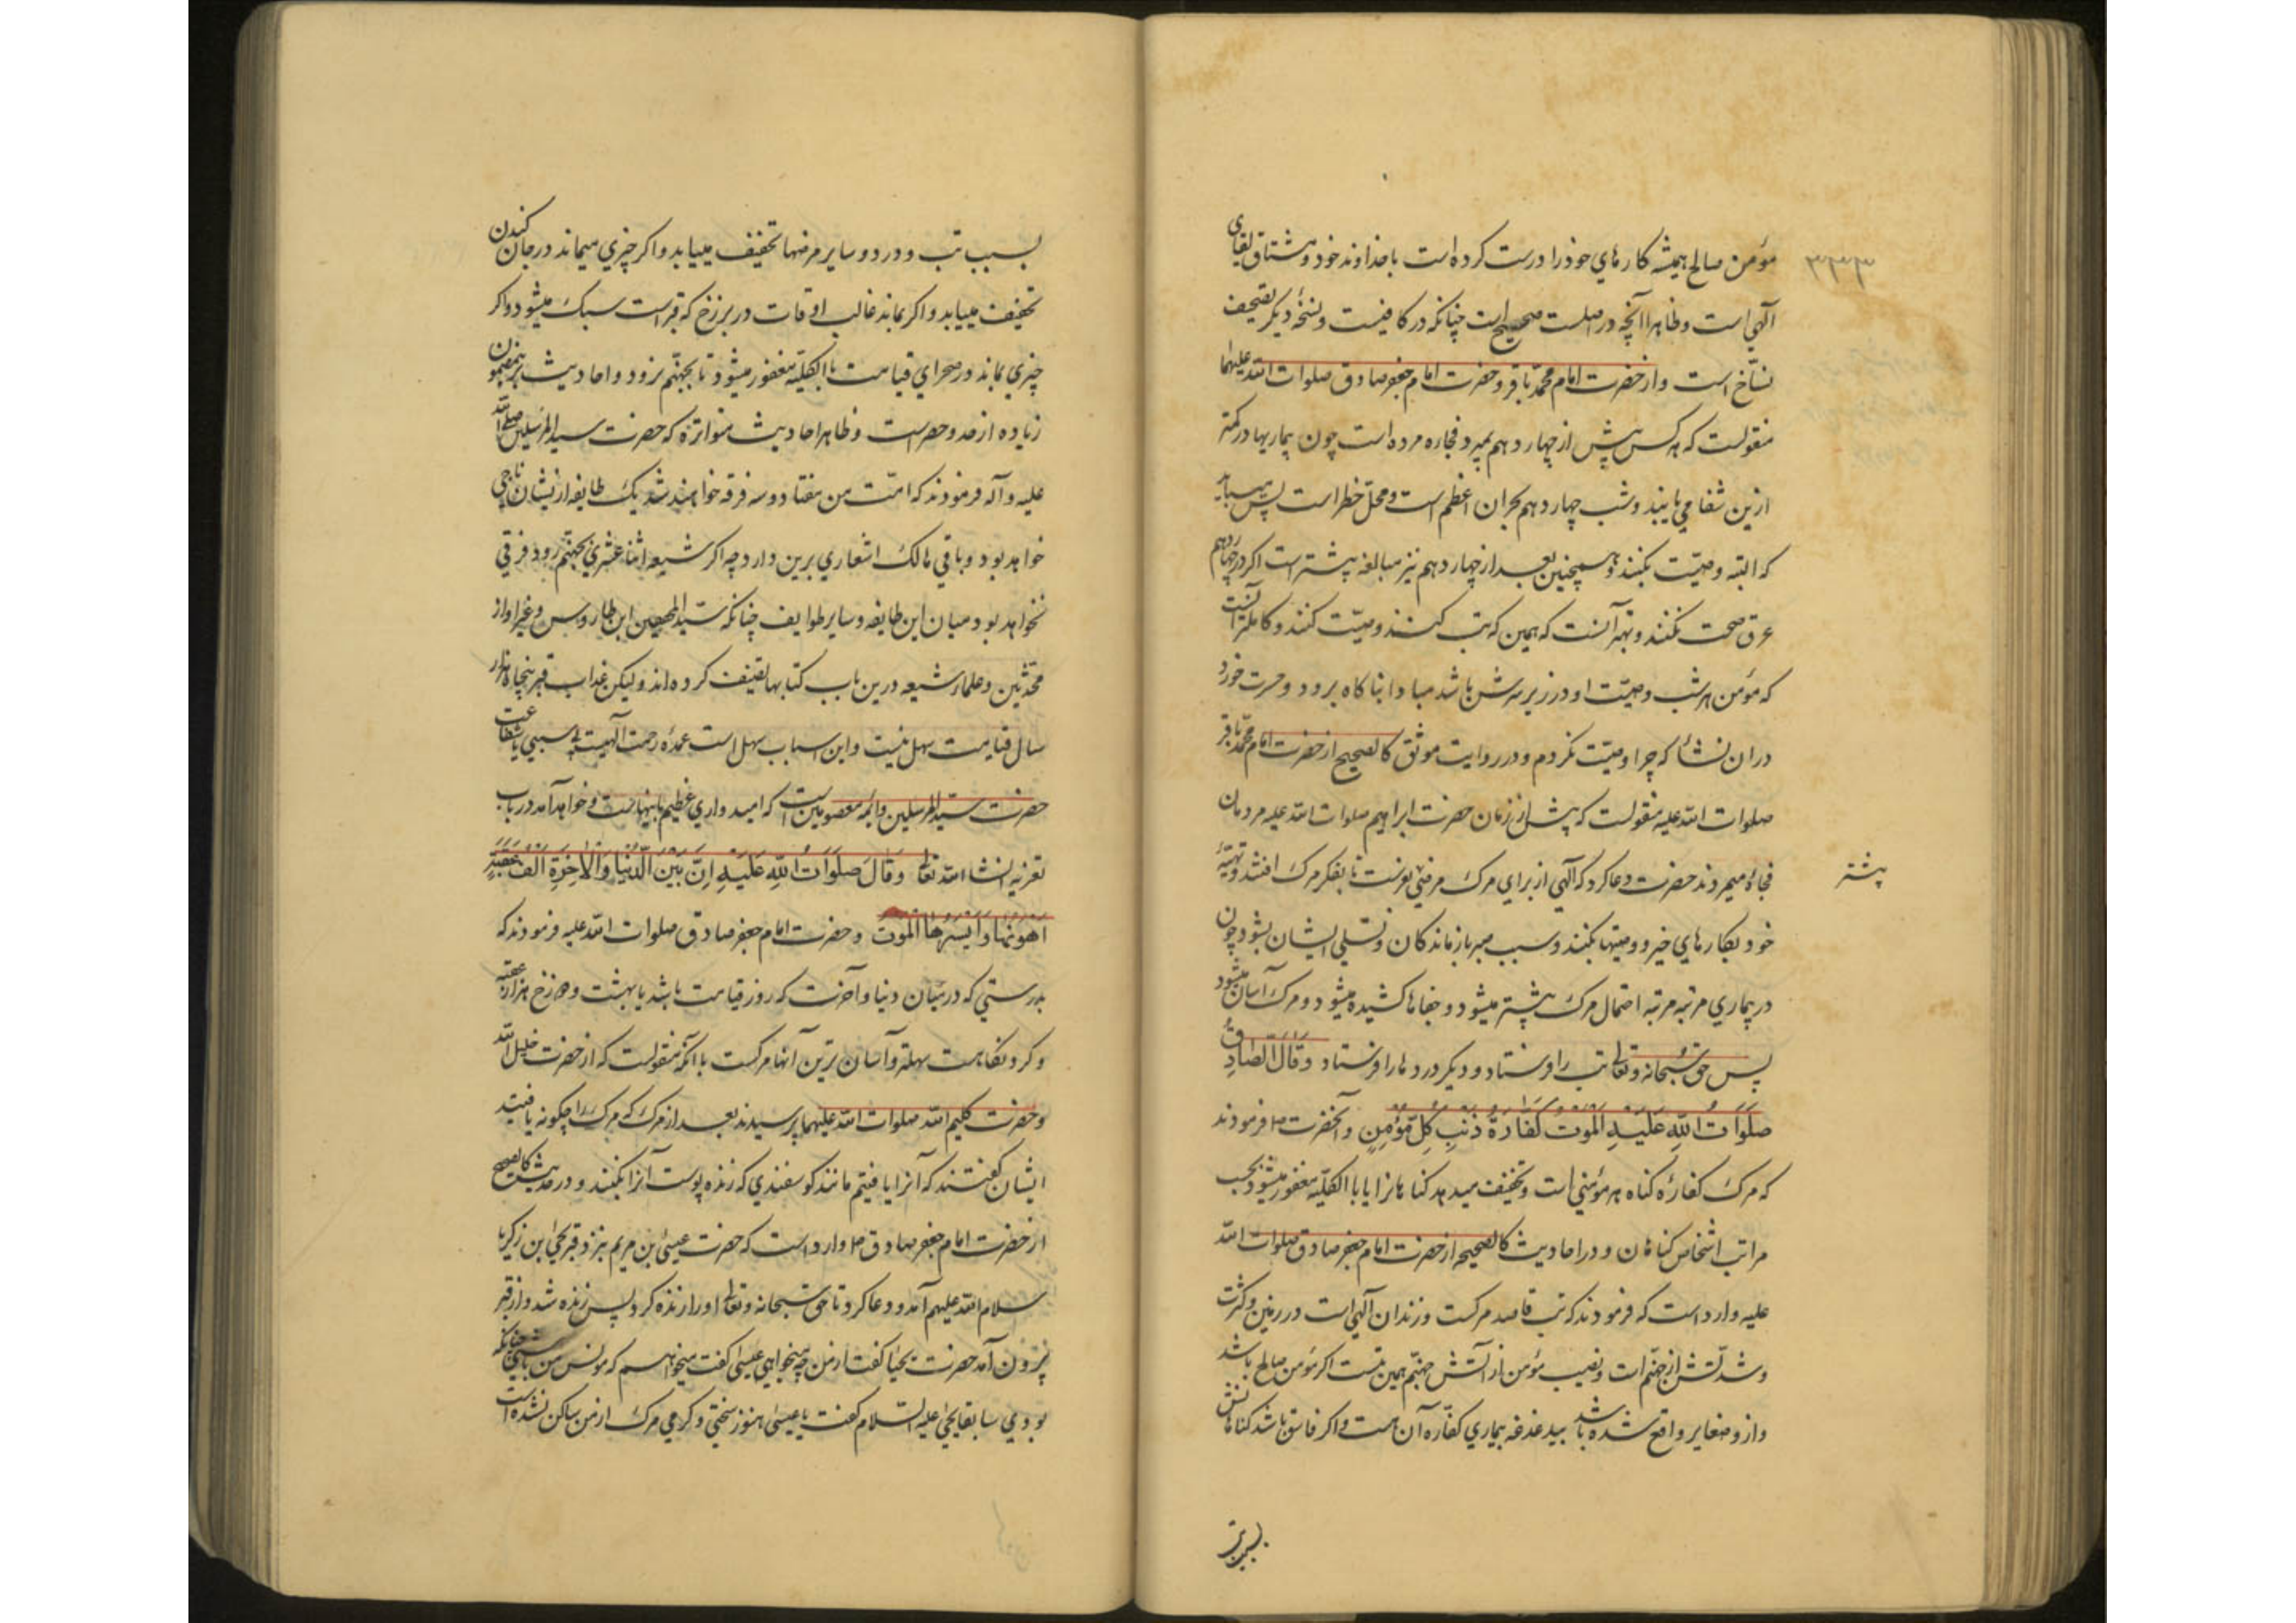 ۳۳۳
مؤمن صالح همیشه کارهای خود را درست کرده است با خداوند خود و مشتاق لقای
آلهی است و ظاهرا آنچه در اصلست صحیح است چنانکه در کافیست و نسخهٔ دیگر تصحیف
نساخ است و از حضرت امام محمد باقر و حضرت امام جعفر صادق صلوات الله علیهما
منقولست که هر کس پیش از چهاردهم بمیرد فجاءه مرده است چون بیماریها در کمتر
ازین شفا می یابند و شب چهاردهم بحران اعظم است و محل خطر است پس میباید
که البته وصیت بکنند و همچنین بعد از چهاردهم نیز مبالغه بیشتر است اگر در چهاردهم
عرق صحت نکنند و بهتر آنست که همین که تب کنند وصیت کنند و کاملتر آنست
که مؤمن هر شب وصیت او در زیر سرش باشد مبادا بناکاه برود و حسرت خورد
دران نشأ که چرا وصیت نکردم و در روایت موثق کالصحیح از حضرت امام محمد باقر
صلوات الله علیه منقولست که پیش از زمان حضرت ابراهیم صلوات الله علیه مردمان
فجاءه میمردند حضرت دعا کرد که آلهی از برای مرک مرضی بفرست تا بفکر مرک افتند و تهیهٔ
بیشتر
خود بکارهای خیر و وصیتها بکنند و سبب صبر بازماندکان و تسلی ایشان بشود چون
در بیماری مرتبه مرتبه احتمال مرک بیشتر میشود و جفاها کشیده میشود و مرک آسان میشود
پس حق سبحانه و تعالی تب را فرستاد و دیگر دردها را فرستاد وَقَالَ الصَّادِقُ
صَلَوَاتُ اللّهِ عَلَیْهِ اَلْمَوْتُ کَفَّارَةُ ذَنْبِ کُلِّ مُؤْمِنٍ و آنحضرت ص فرمودند
که مرک کفارهٔ کناه هر مؤمنی است و تخفیف میدهد کناهانرا یا بالکلیه مغفور میشود بحسب
مراتب اشخاص کناهان و در احادیث کالصحیحه از حضرت امام جعفر صادق صلوات الله
علیه وارد است که فرمودند که تب قاصد مرکست و زندان آلهی است در زمین و کثرت
و شدتش از جهنم است و نصیب مؤمن از آتش جهنم همین تبست اکر مؤمن صالح باشد
و ازو صغایر واقع شده باشد بیدغدغه بیماری کفاره آن هست و اکر فاسق باشد کناهانش
بسبب تب
بسبب تب و درد و سایر مرضها تخفیف مییابد و اکر چیزی میماند در جان کندن
تخفیف مییابد و اکر بماند غالب اوقات در برزخ که قبر است سبک میشود و اکر
چیزی بماند در صحرای قیامت بالکلیه مغفور میشود تا بجهنم نرود و احادیث برینمضمون
زیاده از حد و حصر است و ظاهر احادیث متواتره که حضرت سید المرسلین صلی الله
علیه و آله فرمودند که امت من هفتاد و سه فرقه خواهند شد یک طایفه ازیشان ناجی
خواهد بود و باقی هالک اشعاری برین دارد چه اکر شیعه اثنا عشری بجهنم رود فرقی
نخواهد بود میان این طایفه و سایر طوایف چنانکه سید ابن طاوس و غیر او از
محدثین و علماء شیعه درین باب کتابها تصنیف کرده اند و لیکن عذاب قبر پنجاه هزار
سال قیامت سهل نیست و این اسباب سهل است عمده رحمت آلهیست بی سببی یا شفاعت
حضرت سید المرسلین و ائمه معصومین است که امیدواری عظیم باینها هست و خواهد آمد در باب
تعزیه انشاء الله تعالی وَقَالَ صَلَوَاتُ اللّهِ عَلَیْهِ اِنَّ بَیْنَ الدُّنْیَا وَالْاٰخِرَةِ اَلْفَ عَقَبَةٍ
اَهْوَنُهَا وَاَیْسَرُهَا الْمَوْتُ و حضرت امام جعفر صادق صلوات الله علیه فرمودند که
بدرستی که در میان دنیا و آخرت که روز قیامت باشد یا بهشت و دوزخ هزار عقبه
و کردنکاهست سهلتر و آسان ترین آنها مرکست با آنکه منقولست که از حضرت خلیل الله
و حضرت کلیم الله صلوات الله علیهما پرسیدند بعد از مرک که مرک را چکونه یافتید
ایشان کفتند که آنرا یافتیم مانند کوسفندی که زنده پوست آنرا بکنند و در حدیث کالصحیح
از حضرت امام جعفر صادق ص وارد است که حضرت عیسی بن مریم بنزد قبر یحیی ابن زکریا
سلام الله علیهم آمد و دعا کرد تا حق سبحانه و تعالی او را زنده کرد پس زنده شد و از قبر
بیرون آمد حضرت یحیی کفت از من چه میخواهی عیسی کفت میخواهم که مونس من باشی چنانکه
بودی سابقا یحیی علیه السلام کفت یا عیسی هنوز سختی و کرمی مرک از من ساکن نشده است